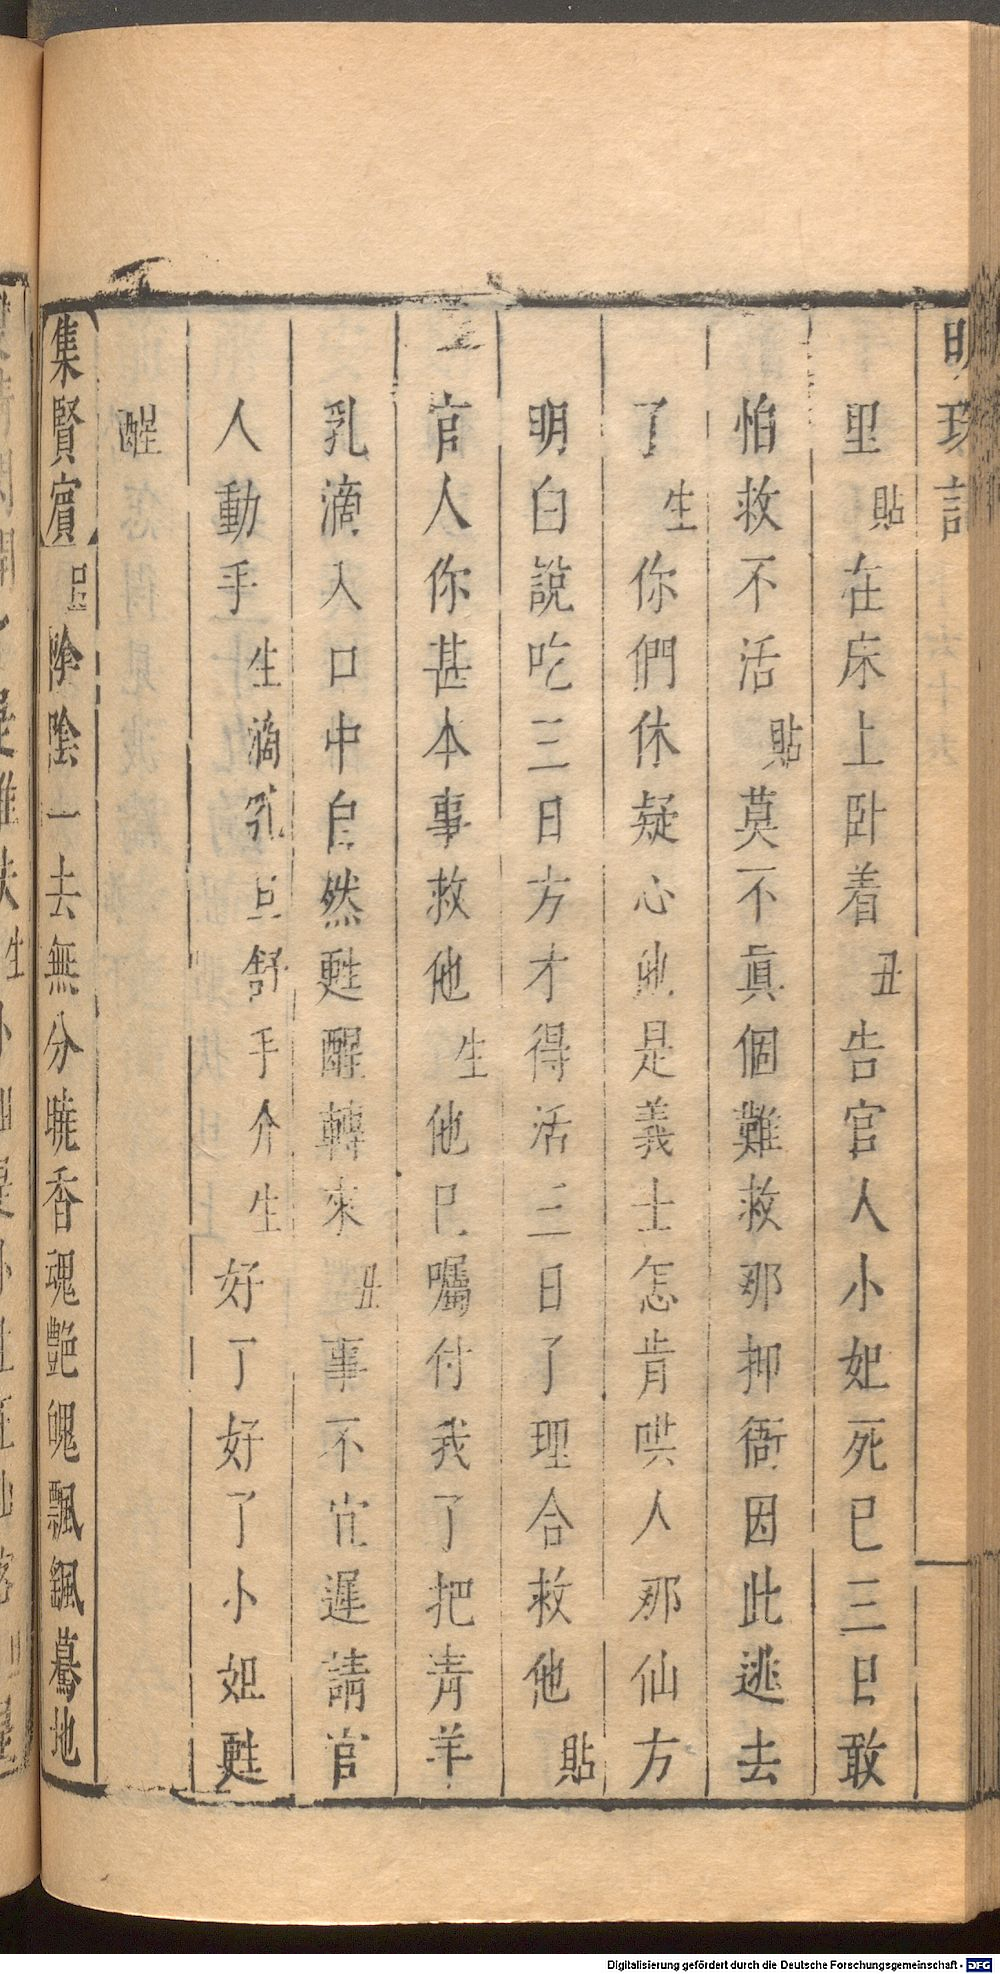 明珠記
里貼在床上卧着丑告官人小姐死已三日敢
怕救不活貼莫不眞個難救那押衙因此逃去
了生你們休疑心他是義士怎肯哄人那仙方
明白說吃三日方才得活三日了理合救他貼
官人你甚本事救他生他已囑付我了把青羊
乳滴入口中自然甦醒轉來丑事不宜遲請官
人動手生滴乳旦舒手介生好了好了小姐甦
醒
集賢賓旦陰陰一去無分曉香魂艶魄飄颻驀地
Digitalisierung gefördert durch die Deutsche Forschungsgemeinschaft - DFG